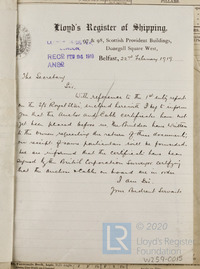 Lloyd's Register of Shipping,
& 98, Scottish Provident Buildings,
Donegall Square West,
Belfast, 22nd February 1919
RECD FEB 1919
The Secretary
Sir,
With reference to the 1st entry report
on the S/S
enclosed herewith I beg to inform
you that the Anchor and Cable certificates have not
yet been placed before me. The Builders have written
to the Owners requesting the return of these documents,
on receipt of same particulars will be forwarded.
I am informed that the certificates have been
signed by the British Corporation Surveyor certifying
that the anchors & Cables on board are in order.
I am Sir,
Your Obedient Servant
© 2020
Lloyd's Register
Foundation
W239-0015